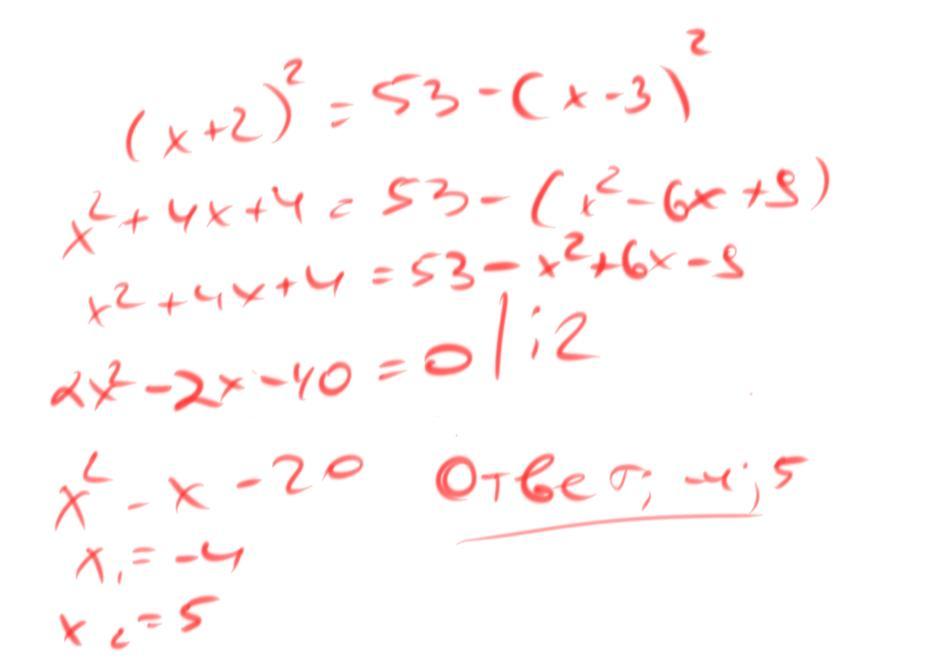 (x+2)² = 53 - (x-3)²
x² + 4x + 4 = 53 - (x² - 6x + 9)
x² + 4x + 4 = 53 - x² + 6x - 9
2x² - 2x - 40 = 0 | : 2
x² - x - 20
Ответ: -4; 5
x₁ = -4
x₂ = 5